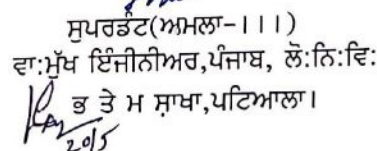 ਸੁਪਰਡੰਟ(ਅਮਲਾ-।।।)
ਵਾ:ਮੁੱਖ ਇੰਜੀਨੀਅਰ,ਪੰਜਾਬ, ਲੋ:ਨਿ:ਵਿ:
ਭ ਤੇ ਮ ਸ਼ਾਖਾ,ਪਟਿਆਲਾ।
20/5